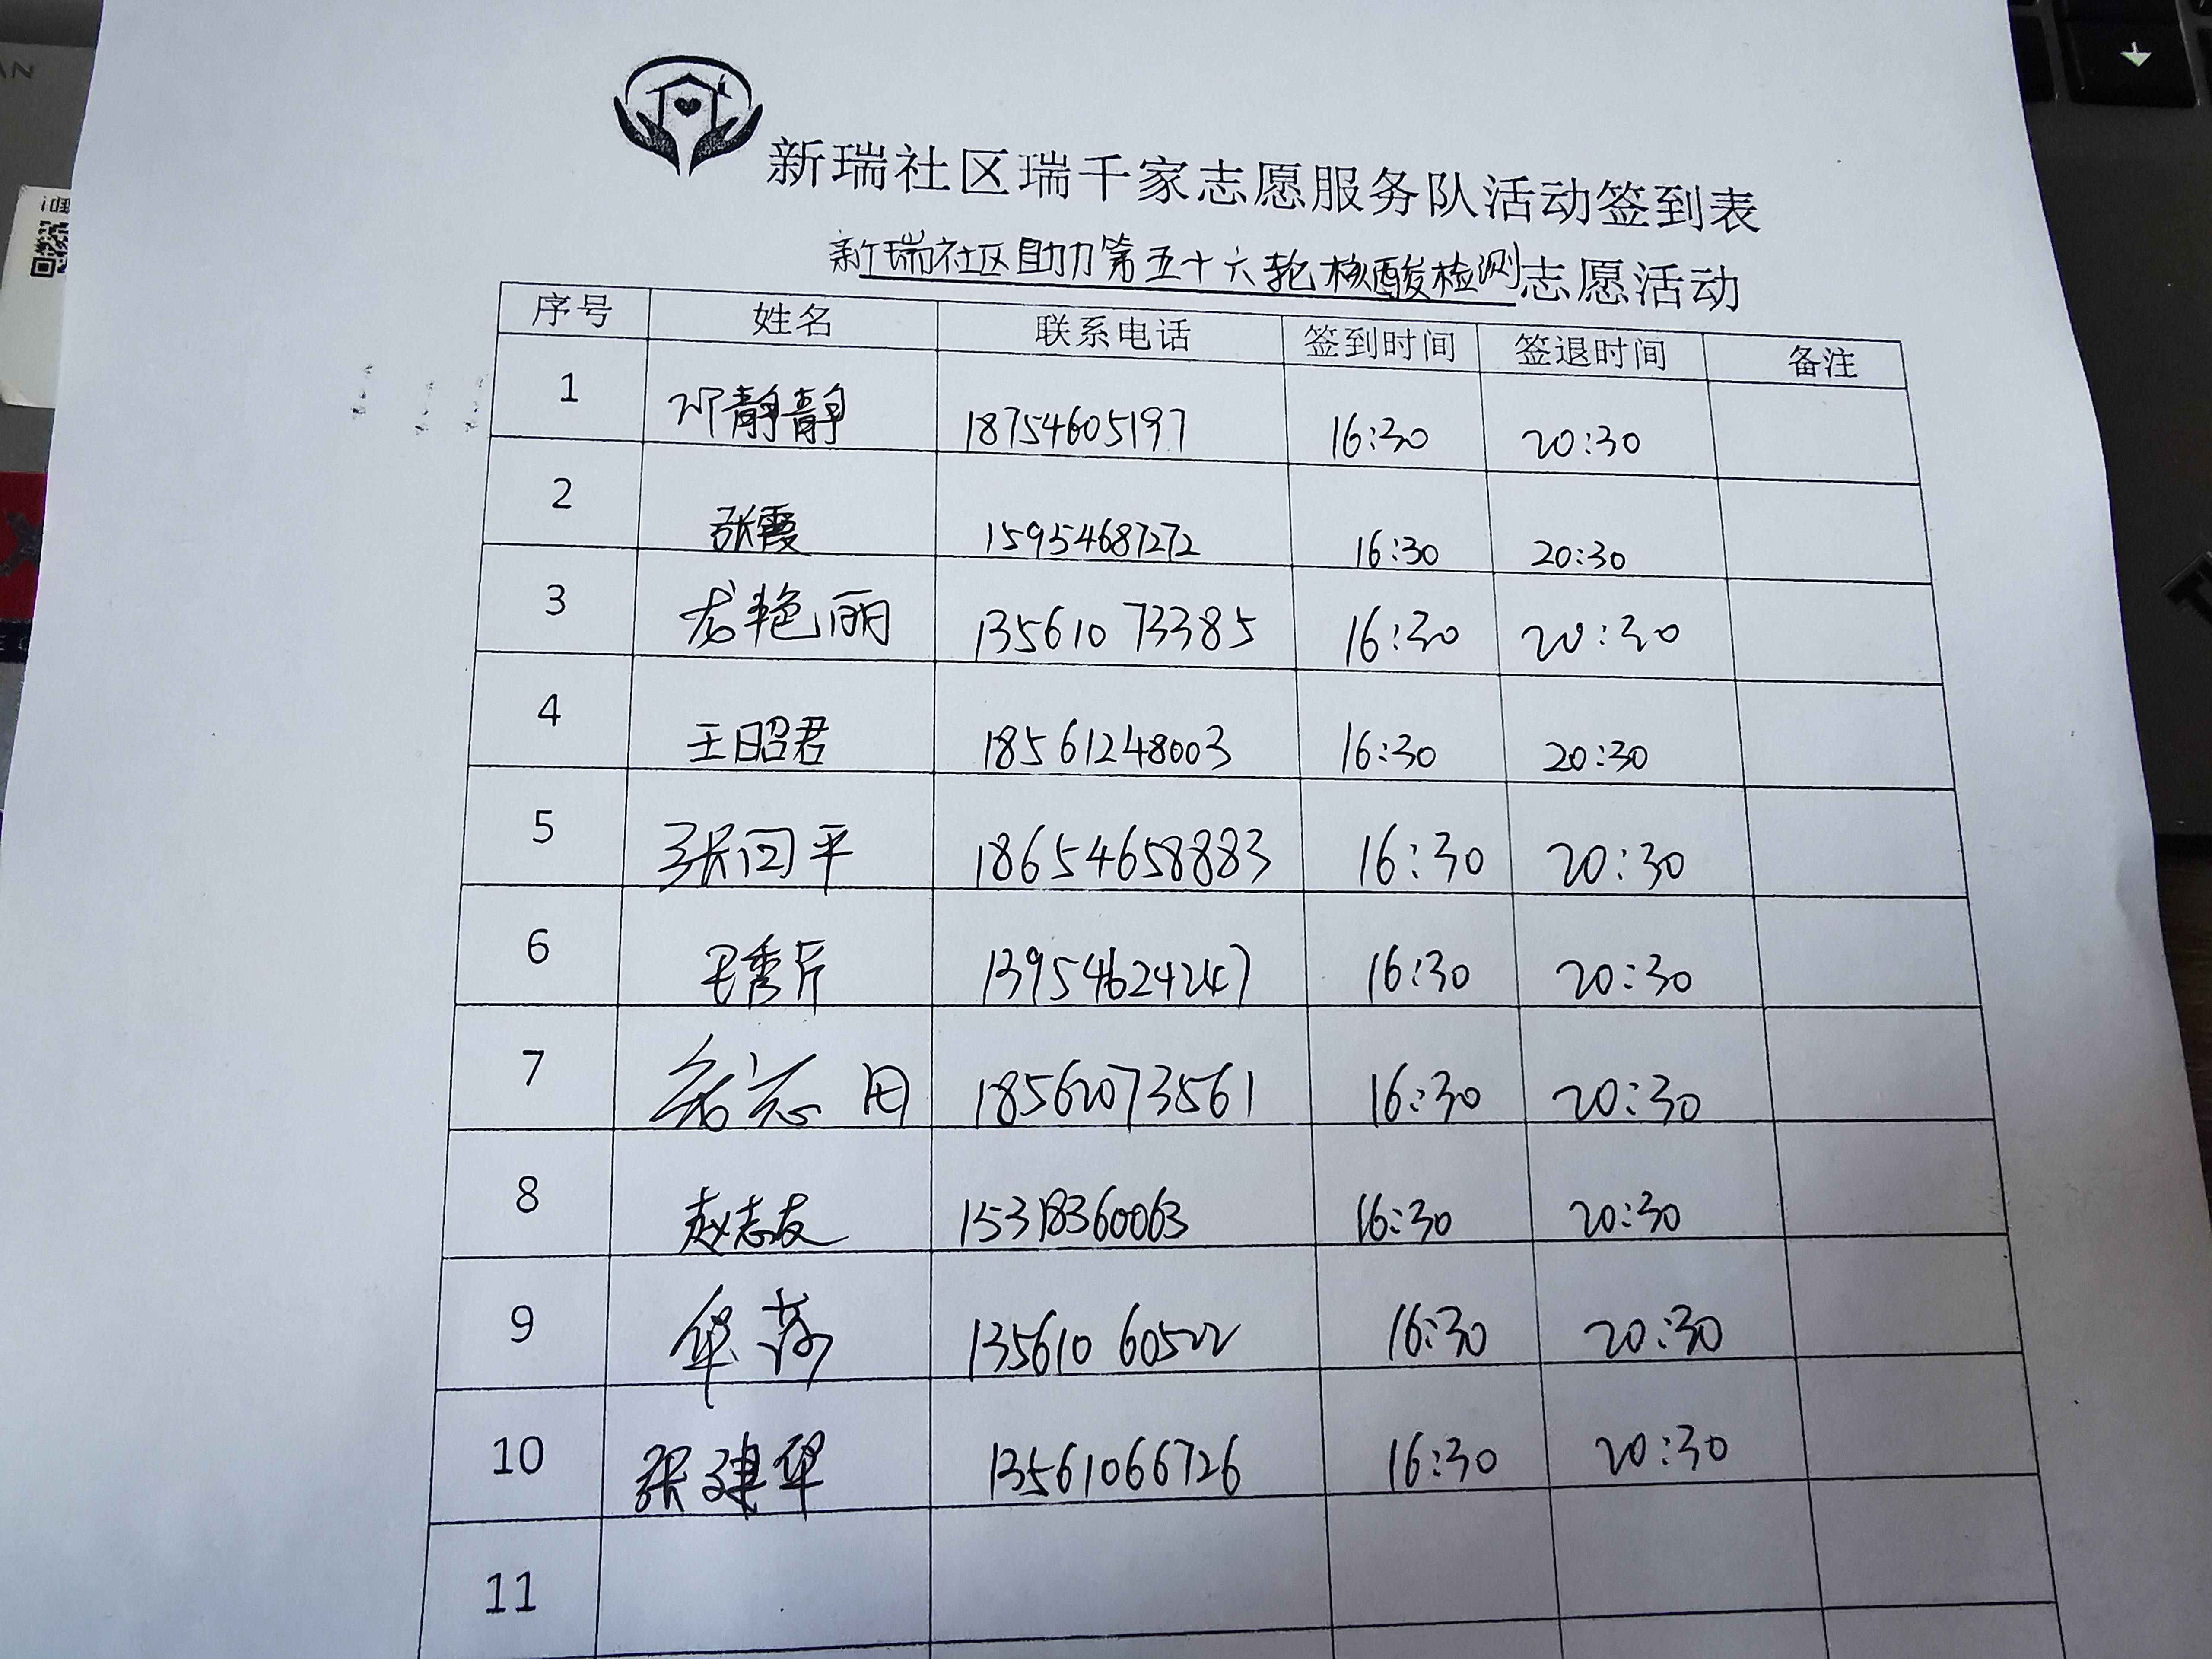 新瑞社区瑞千家志愿服务队活动签到表
新瑞社区助力第五十六轮核酸检测志愿活动
序号 姓名 联系电话 签到时间 签退时间 备注
1 邓静静 18754605197 16:30 20:30
2 张霞 15954687272 16:30 20:30
3 尤艳丽 13561073385 16:30 20:30
4 王昭君 18561248003 16:30 20:30
5 张回平 18654658883 16:30 20:30
6 毛秀芹 13954624247 16:30 20:30
7 18562073561 16:30 20:30
8 赵志友 15318360063 16:30 20:30
9 13561060522 16:30 20:30
10 张建华 13561066726 16:30 20:30
11